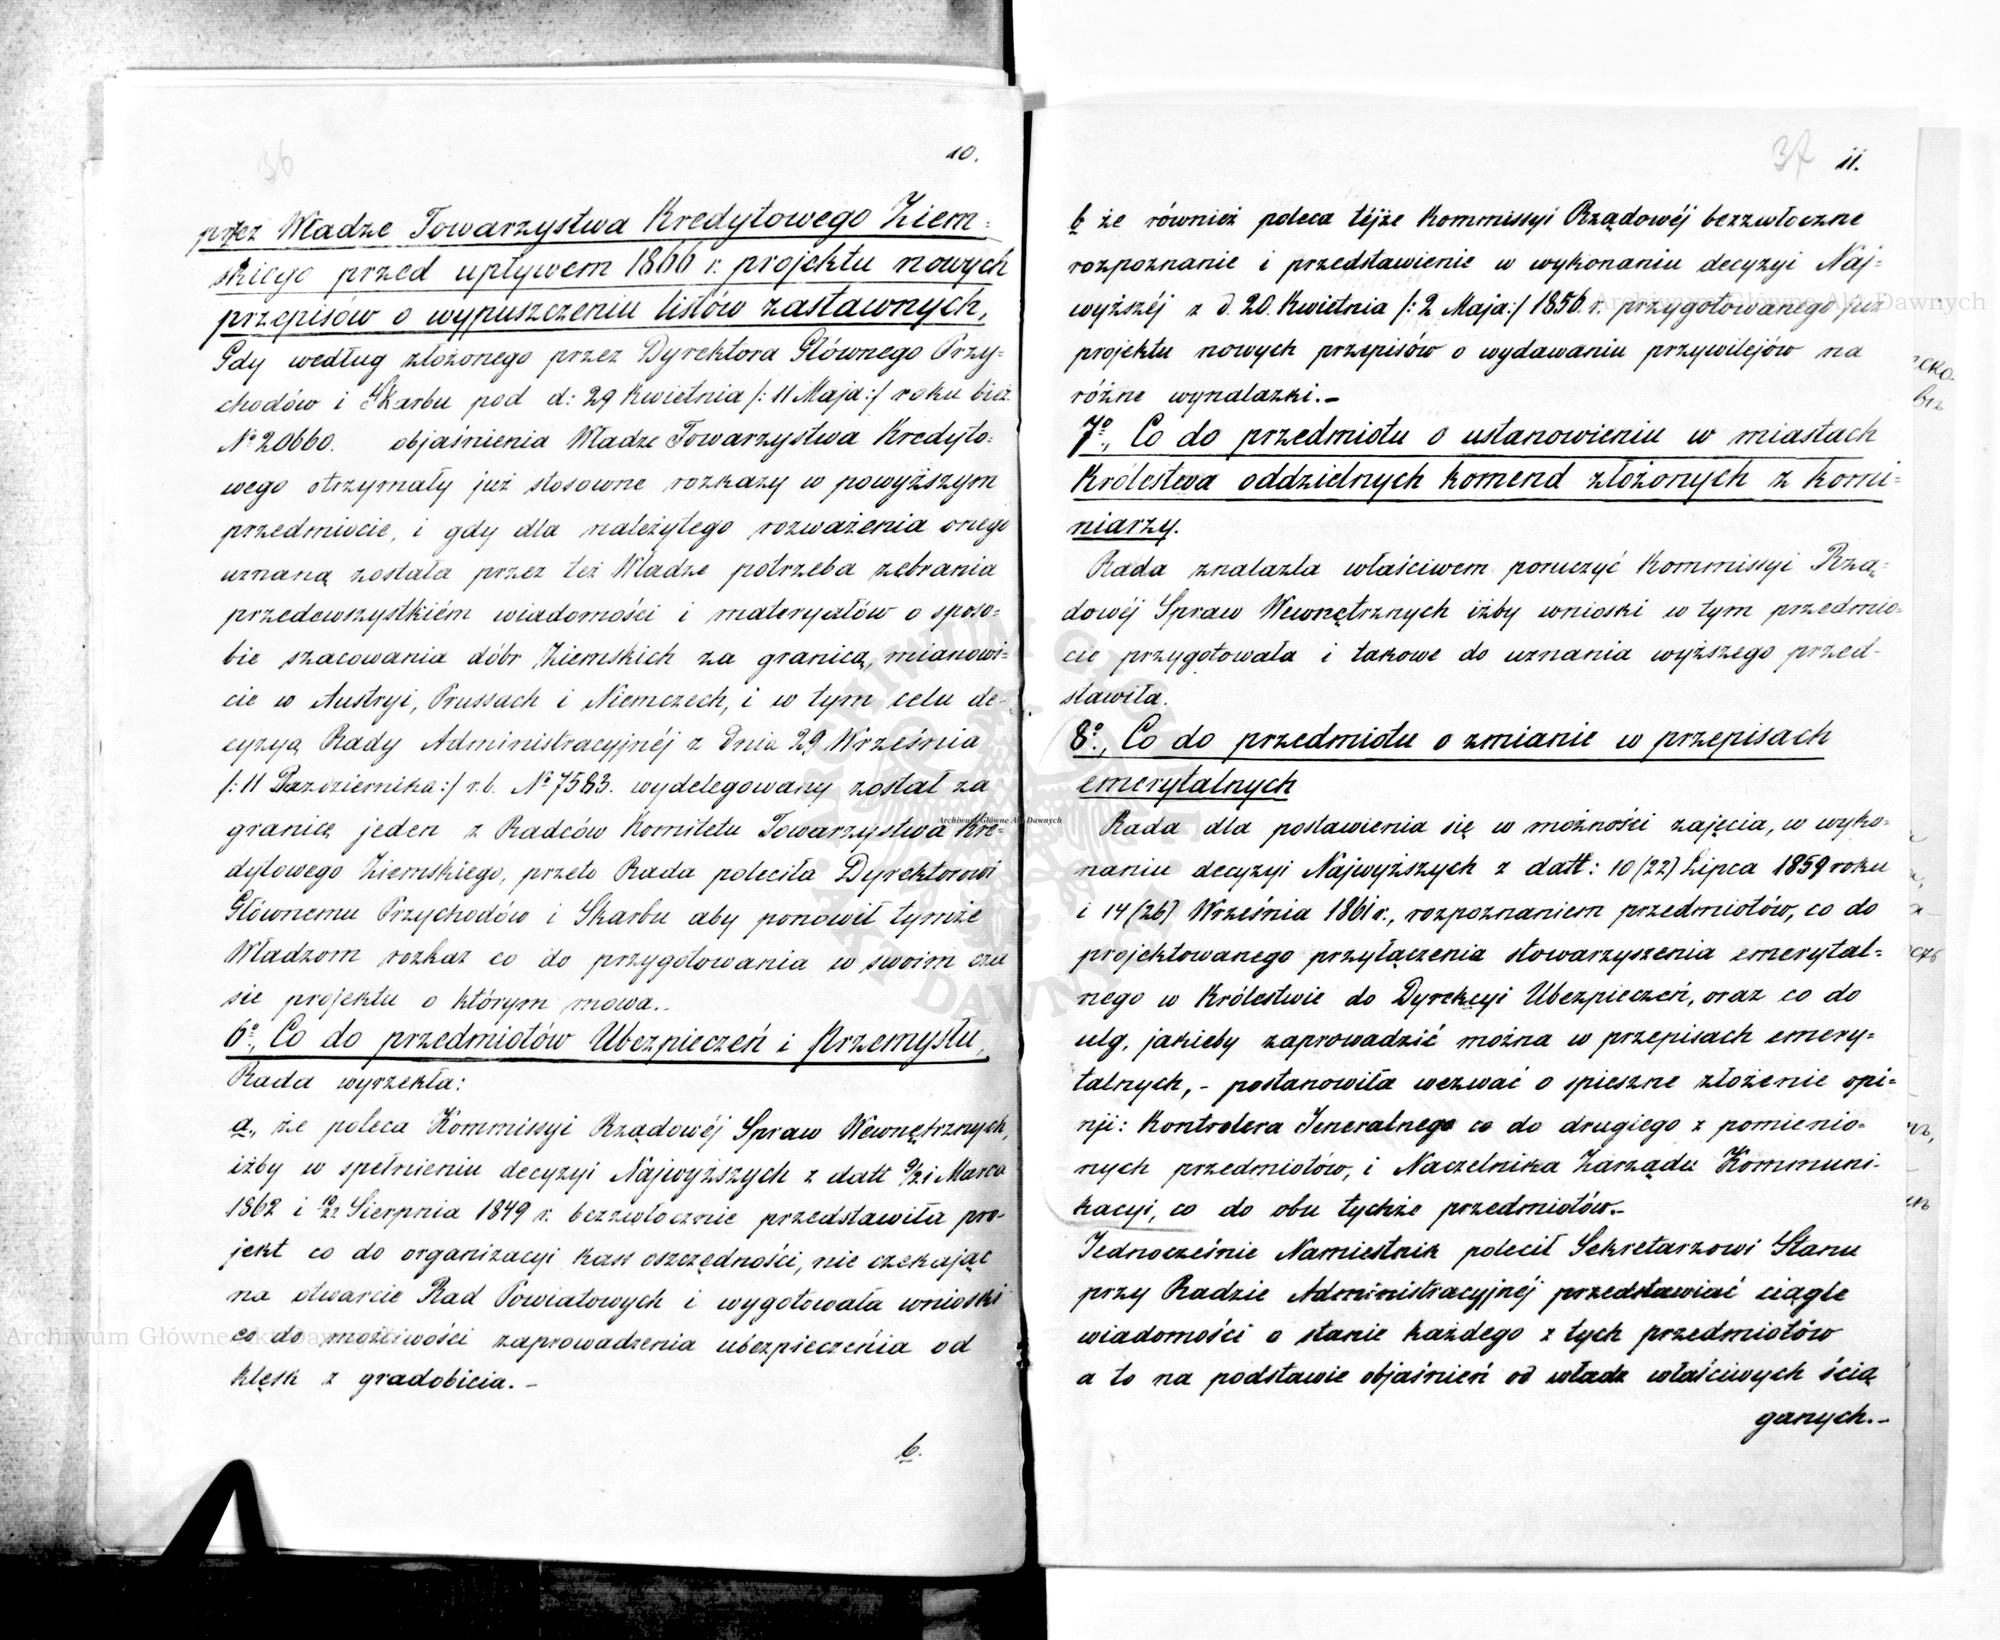 36
10.
przez Władze Towarzystwa Kredytowego Ziem-
skiego przed upływem 1866 r. projektu nowych
przepisów o wypuszczeniu listów zastawnych,
Gdy według złożonego przez Dyrektora Głównego Przy-
chodów i Skarbu pod d: 29 Kwietnia /: 11 Maja:/ roku bież.
Nº 20660. objaśnienia Władze Towarzystwa Kredyto-
wego otrzymały już stosowne rozkazy w powyższym
przedmiocie, i gdy dla należytego rozważenia onego
uznaną została przez też Władze potrzeba zebrania
przedewszystkiém wiadomości i materyałów o sposo-
bie szacowania dóbr Ziemskich za granicą, mianowi-
cie w Austryi, Prussach i Niemczech, i w tym celu de-
cyzyą Rady Administracyjnéj z dnia 29 Września
/: 11 Października:/ r.b. Nº 7583. wydelegowany został za
granicę jeden z Radców Komitetu Towarzystwa Kre-
dytowego Ziemskiego, przeto Rada poleciła Dyrektorowi
Głównemu Przychodów i Skarbu aby ponowił tymże
Władzom rozkaz co do przygotowania w swoim cza
sie projektu o którym mowa.-
6º, Co do przedmiotów Ubezpieczeń i Przemysłu,
Rada wyrzekła:
a., że poleca Kommissyi Rządowéj Spraw Wewnętrznych,
iżby w spełnieniu decyzyi Najwyższych z datt 9/21 Marca
1862 i 10/22 Sierpnia 1849 r. bezzwłocznie przedstawiła pro-
jekt co do organizacyi kass oszczędności, nie czekając
na otwarcie Rad Powiatowych i wygotowała wnioski
co do możliwości zaprowadzenia ubezpieczeńia od
klęsk z gradobicia.-
b.
37
11.
b że również poleca téjże Kommissyi Rządowéj bezzwłoczne
rozpoznanie i przedstawienie w wykonaniu decyzyi Naj-
wyższéj z d. 20. Kwietnia /: 2 Maja:/ 1856. r. przygotowanego już
projektu nowych przepisów o wydawaniu przywilejów na
różne wynalazki.-
7º, Co do przedmiotu o ustanowieniu w miastach
Królestwa oddzielnych komend złożonych z komi-
niarzy.
Rada znalazła właściwem poruczyć Kommissyi Rzą-
dowéj Spraw Wewnętrznych iżby wnioski w tym przedmio-
cie przygotowała i takowe do uznania wyższego przed-
stawiła.
8º, Co do przedmiotu o zmianie w przepisach
emerytalnych
Rada dla postawienia się w możności zajęcia, w wyko-
naniu decyzyi Najwyższych z datt: 10 (22) Lipca 1859 roku
i 14 (26) Września 1861 r., rozpoznaniem przedmiotów, co do
projektowanego przyłączenia stowarzyszenia emerytal-
nego w Królestwie do Dyrekcyi Ubezpieczeń, oraz co do
ulg, jakieby zaprowadzić można w przepisach emery-
talnych, - postanowiła wezwać o spieszne złożenie opi-
nji: Kontrolera Jeneralnego co do drugiego z pomienio-
nych przedmiotów, i Naczelnika Zarządu Kommuni-
kacyi, co do obu tychże przedmiotów.-
Jednocześnie Namiestnik polecił Sekretarzowi Stanu
przy Radzie Administracyjnéj przedstawiać ciągle
wiadomości o stanie każdego z tych przedmiotów
a to na podstawie objaśnień od władz właściwych ścią
ganych.-
Archiwum Główne Akt Dawnych